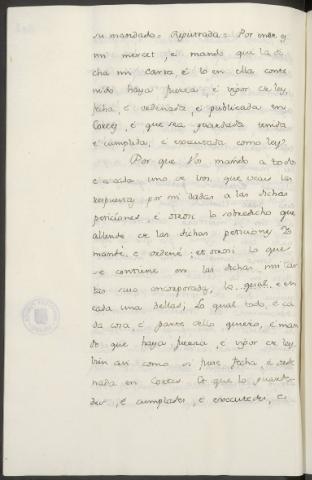 su mandado = Registrada = Por ende es
mi merced, e mando que la di
cha mi carta e lo en ella conte
nido haya fuerza, e vigor de ley,
fecha, e ordenada, e publicada en
Cortes, e que sea guardada tenida
e cumplida, e executada como ley.
Por que Vos mando a todos
e a cada uno de vos, que veais las
respuestas por mi dadas a las dichas
peticiones, e otrosi lo sobredicho que
allende de las dichas peticiones Yo
mandé, e ordené; et otrosi lo que
se contiene en las dichas mis car
tas suso incorporadas, lo qual, e en
cada una dellas; Lo qual todo, e ca
da cosa, e parte dello quiero, e man
do que haya fuerza, e vigor de ley,
bien asi como si fuese fecha, e orde
nada en Cortes. Et que lo guarde
des, e cumplades, e executedes, e